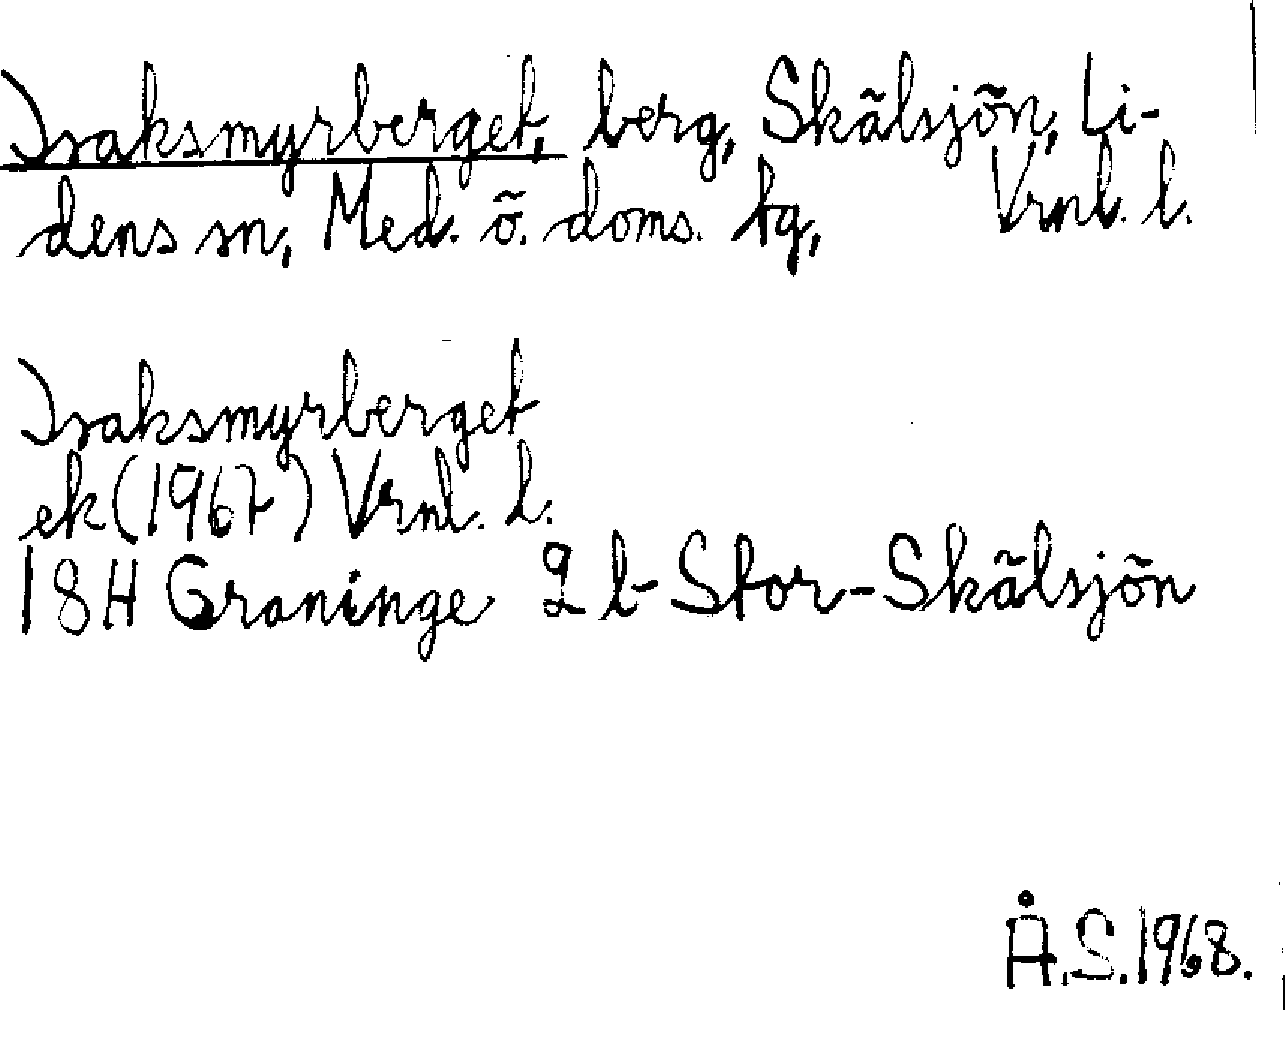 Isaksmyrberget, berg, Skälsjön, Li-
dens sn, Med. ö. doms. tg, Vrnl. l.
Isaksmyrberget
ek (1967) Vrnl. l.
18H Graninge 2 b - Stor-Skälsjön
Å.S. 1968.